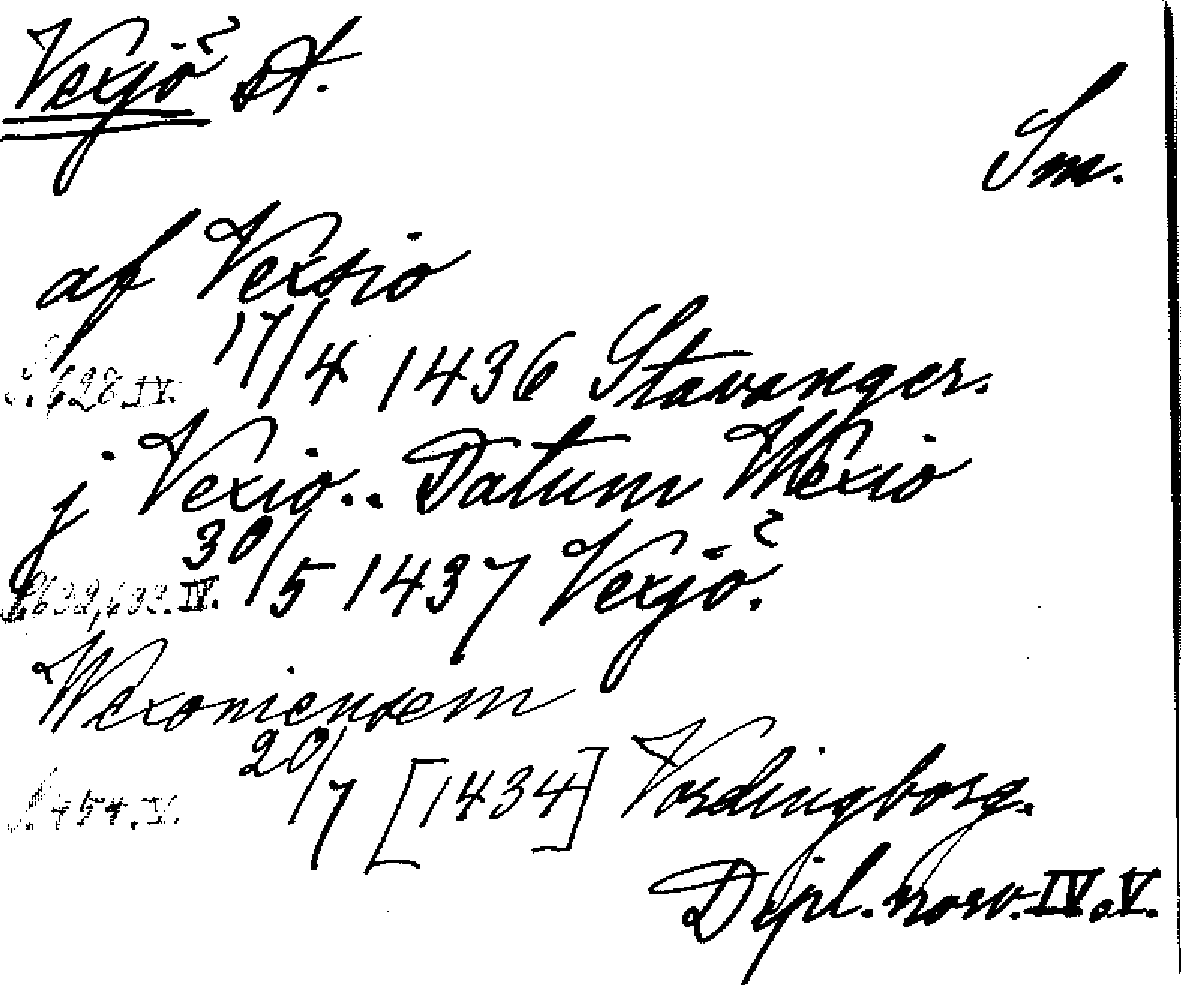 Vexjö st.
Sm.
af Vexsio
S. 628. IV. 17/4 1436 Stavanger.
j Vexio.. Datum Wexio
S. 632, 633. IV. 30/5 1437 Vexjö.
Wexoniensem
S. 454. V. 20/7 [1434] Vordingborg.
Dipl. norv. IV. o. V.